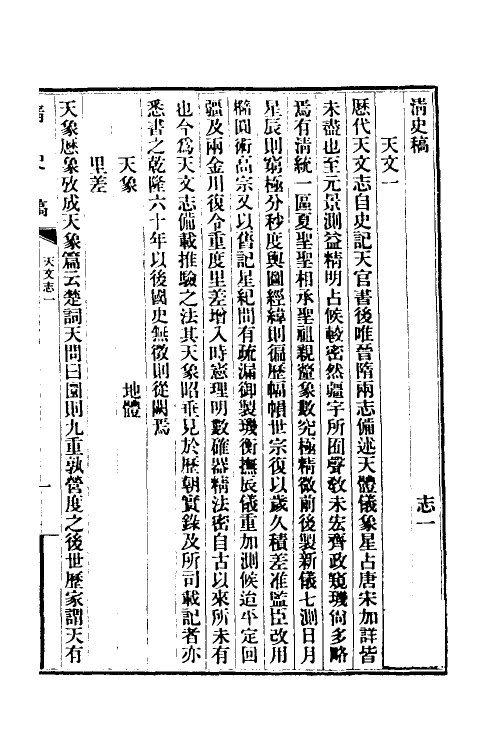 清史稿　志一
天文一
歷代天文志自史記天官書後唯晉隋兩志備述天體儀象星占唐宋加詳皆
未盡也至元景測益精明占候較密然疆宇所囿聲敎未宏齊政窺璣尙多略
焉有清統一區夏聖聖相承聖祖親釐象數究極精微前後製新儀七測日月
星辰則窮極分秒度輿圖經緯則徧歷幅幀世宗復以歲久積差准監臣改用
橢圜術高宗又以舊記星紀間有疏漏御製璣衡撫辰儀重加測候迨平定回
疆及兩金川復令重度里差增入時憲理明數確器精法密自古以來所未有
也今爲天文志備載推驗之法其天象昭垂見於歷朝實錄及所司載記者亦
悉書之乾隆六十年以後國史無徵則從闕焉
天象　地體
里差
天象歷象攷成天象篇云楚詞天問曰圜則九重孰營度之後世歷家謂天有
清史稿　天文志一　一